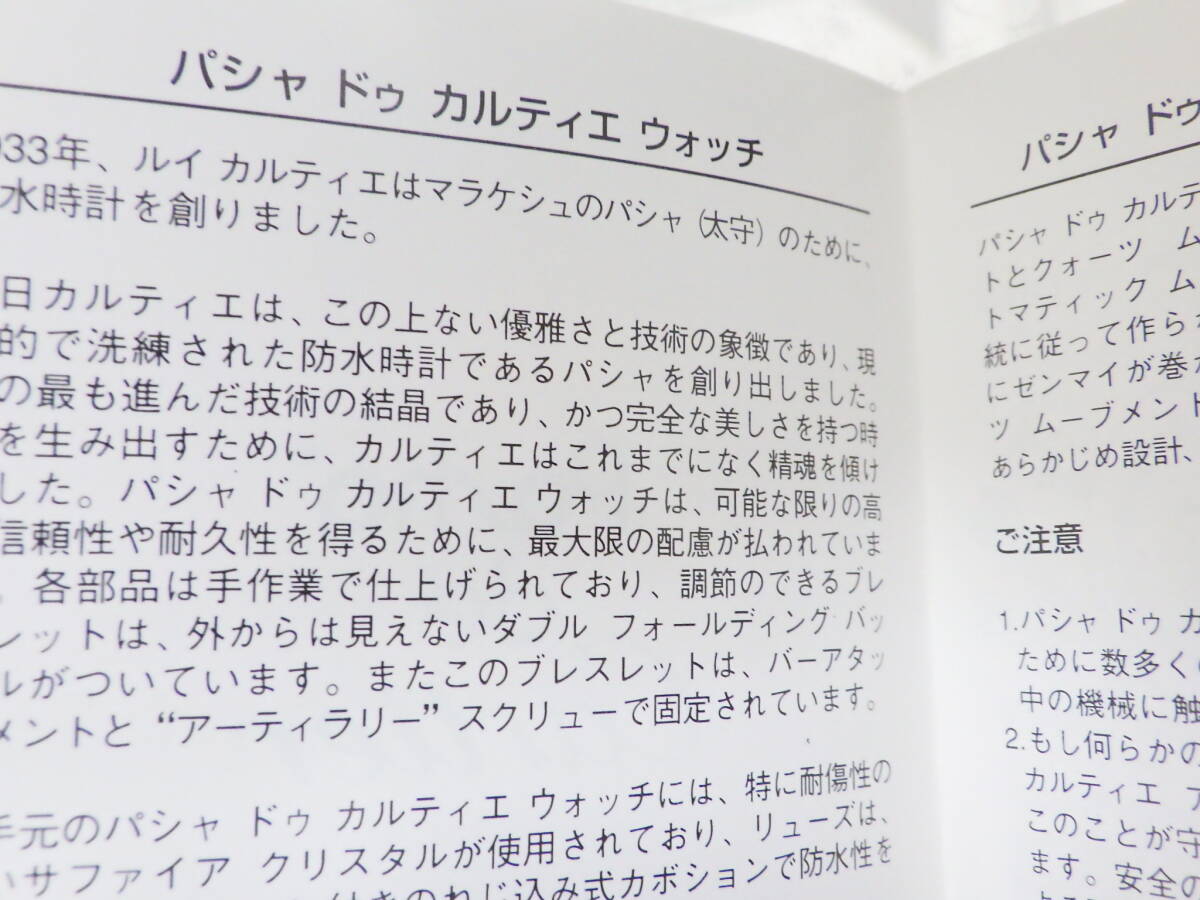 パシャ ドゥ カルティエ ウォッチ
933年、ルイ カルティエはマラケシュのパシャ（太守）のために、
水時計を創りました。
日カルティエは、この上ない優雅さと技術の象徴であり、現
的で洗練された防水時計であるパシャを創り出しました。
の最も進んだ技術の結晶であり、かつ完全な美しさを持つ時
を生み出すために、カルティエはこれまでになく精魂を傾け
した。パシャ ドゥ カルティエ ウォッチは、可能な限りの高
信頼性や耐久性を得るために、最大限の配慮が払われていま
。各部品は手作業で仕上げられており、調節のできるブレ
レットは、外からは見えないダブル フォールディング バッ
ルがついています。またこのブレスレットは、バーアタッ
メントと “アーティラリー” スクリューで固定されています。
手元のパシャ ドゥ カルティエ ウォッチには、特に耐傷性の
いサファイア クリスタルが使用されており、リューズは、
きのねじ込み式カボションで防水性を
パシャ ドゥ
パシャ ドゥ カルテ
トとクォーツ ム
トマティック ム
統に従って作ら
にゼンマイが巻
ツ ムーブメント
あらかじめ設計、
ご注意
1.パシャ ドゥ カ
ために数多く
中の機械に触
2.もし何らかの
カルティエ ア
このことが守
ます。安全の